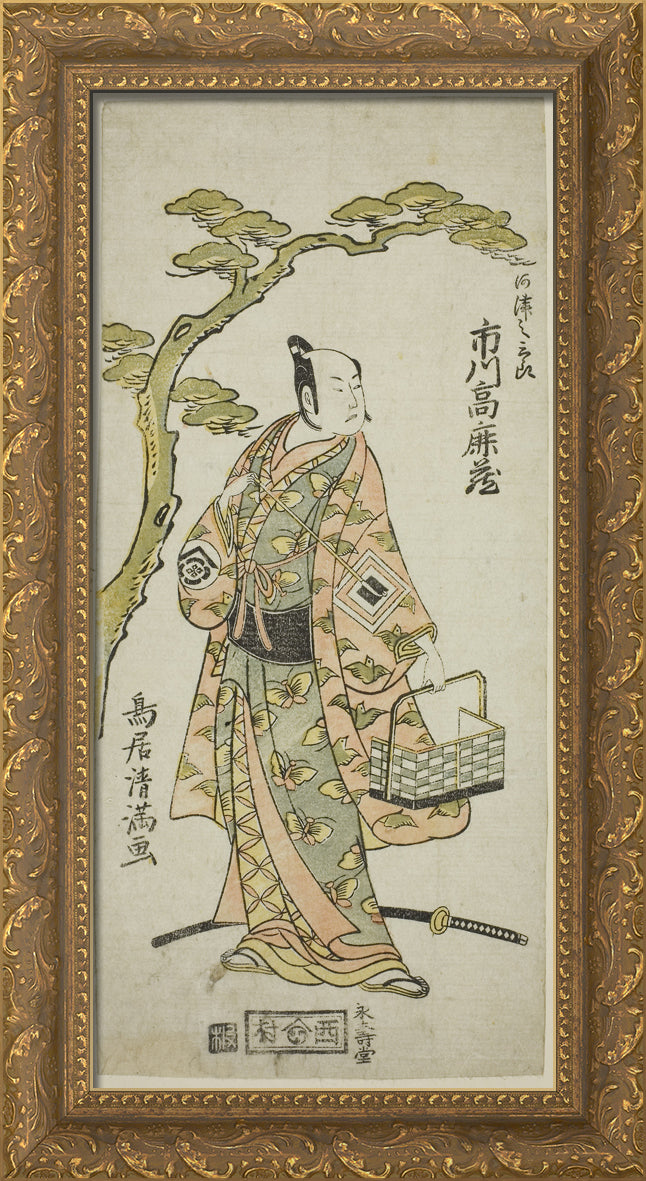 河津之三郎
市川高麻蔵
鳥居清満画
永壽堂
西村
板